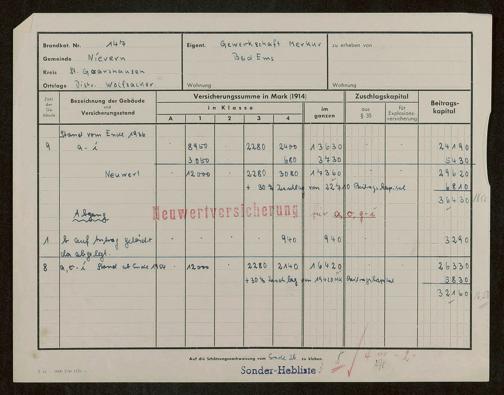 Brandkat. Nr. 147
Gemeinde Nievern
Kreis St. Goarshausen
Ortslage Distr. Wolfsacker
Eigent. Gewerkschaft Merkur
Bad Ems
Wohnung
zu erheben von
Wohnung
Zahl der Gebäude
Bezeichnung der Gebäude und Versicherungsstand
Versicherungssumme in Mark (1914)
in Klasse
A 1 2 3 4
im ganzen
Zuschlagskapital
aus § 35
für Explosionsversicherung
Beitragskapital
Stand vom Ende 1946
9 a-i 8950 2280 2400 13630 24190
3050 680 3730 5430
Neuwert 12000 2280 3080 17360 29620
+ 30 % Zuschlag von Beitragskapital 6810
36430
Neuwertversicherung für
Abgang
1 b auf Antrag gelöscht 940 940 3290
da abgelegt.
8 a,c-i Stand ab Ende 1954 12000 2280 2140 16420 26330
+30% Zuschlag von Beitragskapital 3830
32160
Auf die Schätzungsanweisung vom Ende 26 zu kleben.
Sonder-Hebliste: